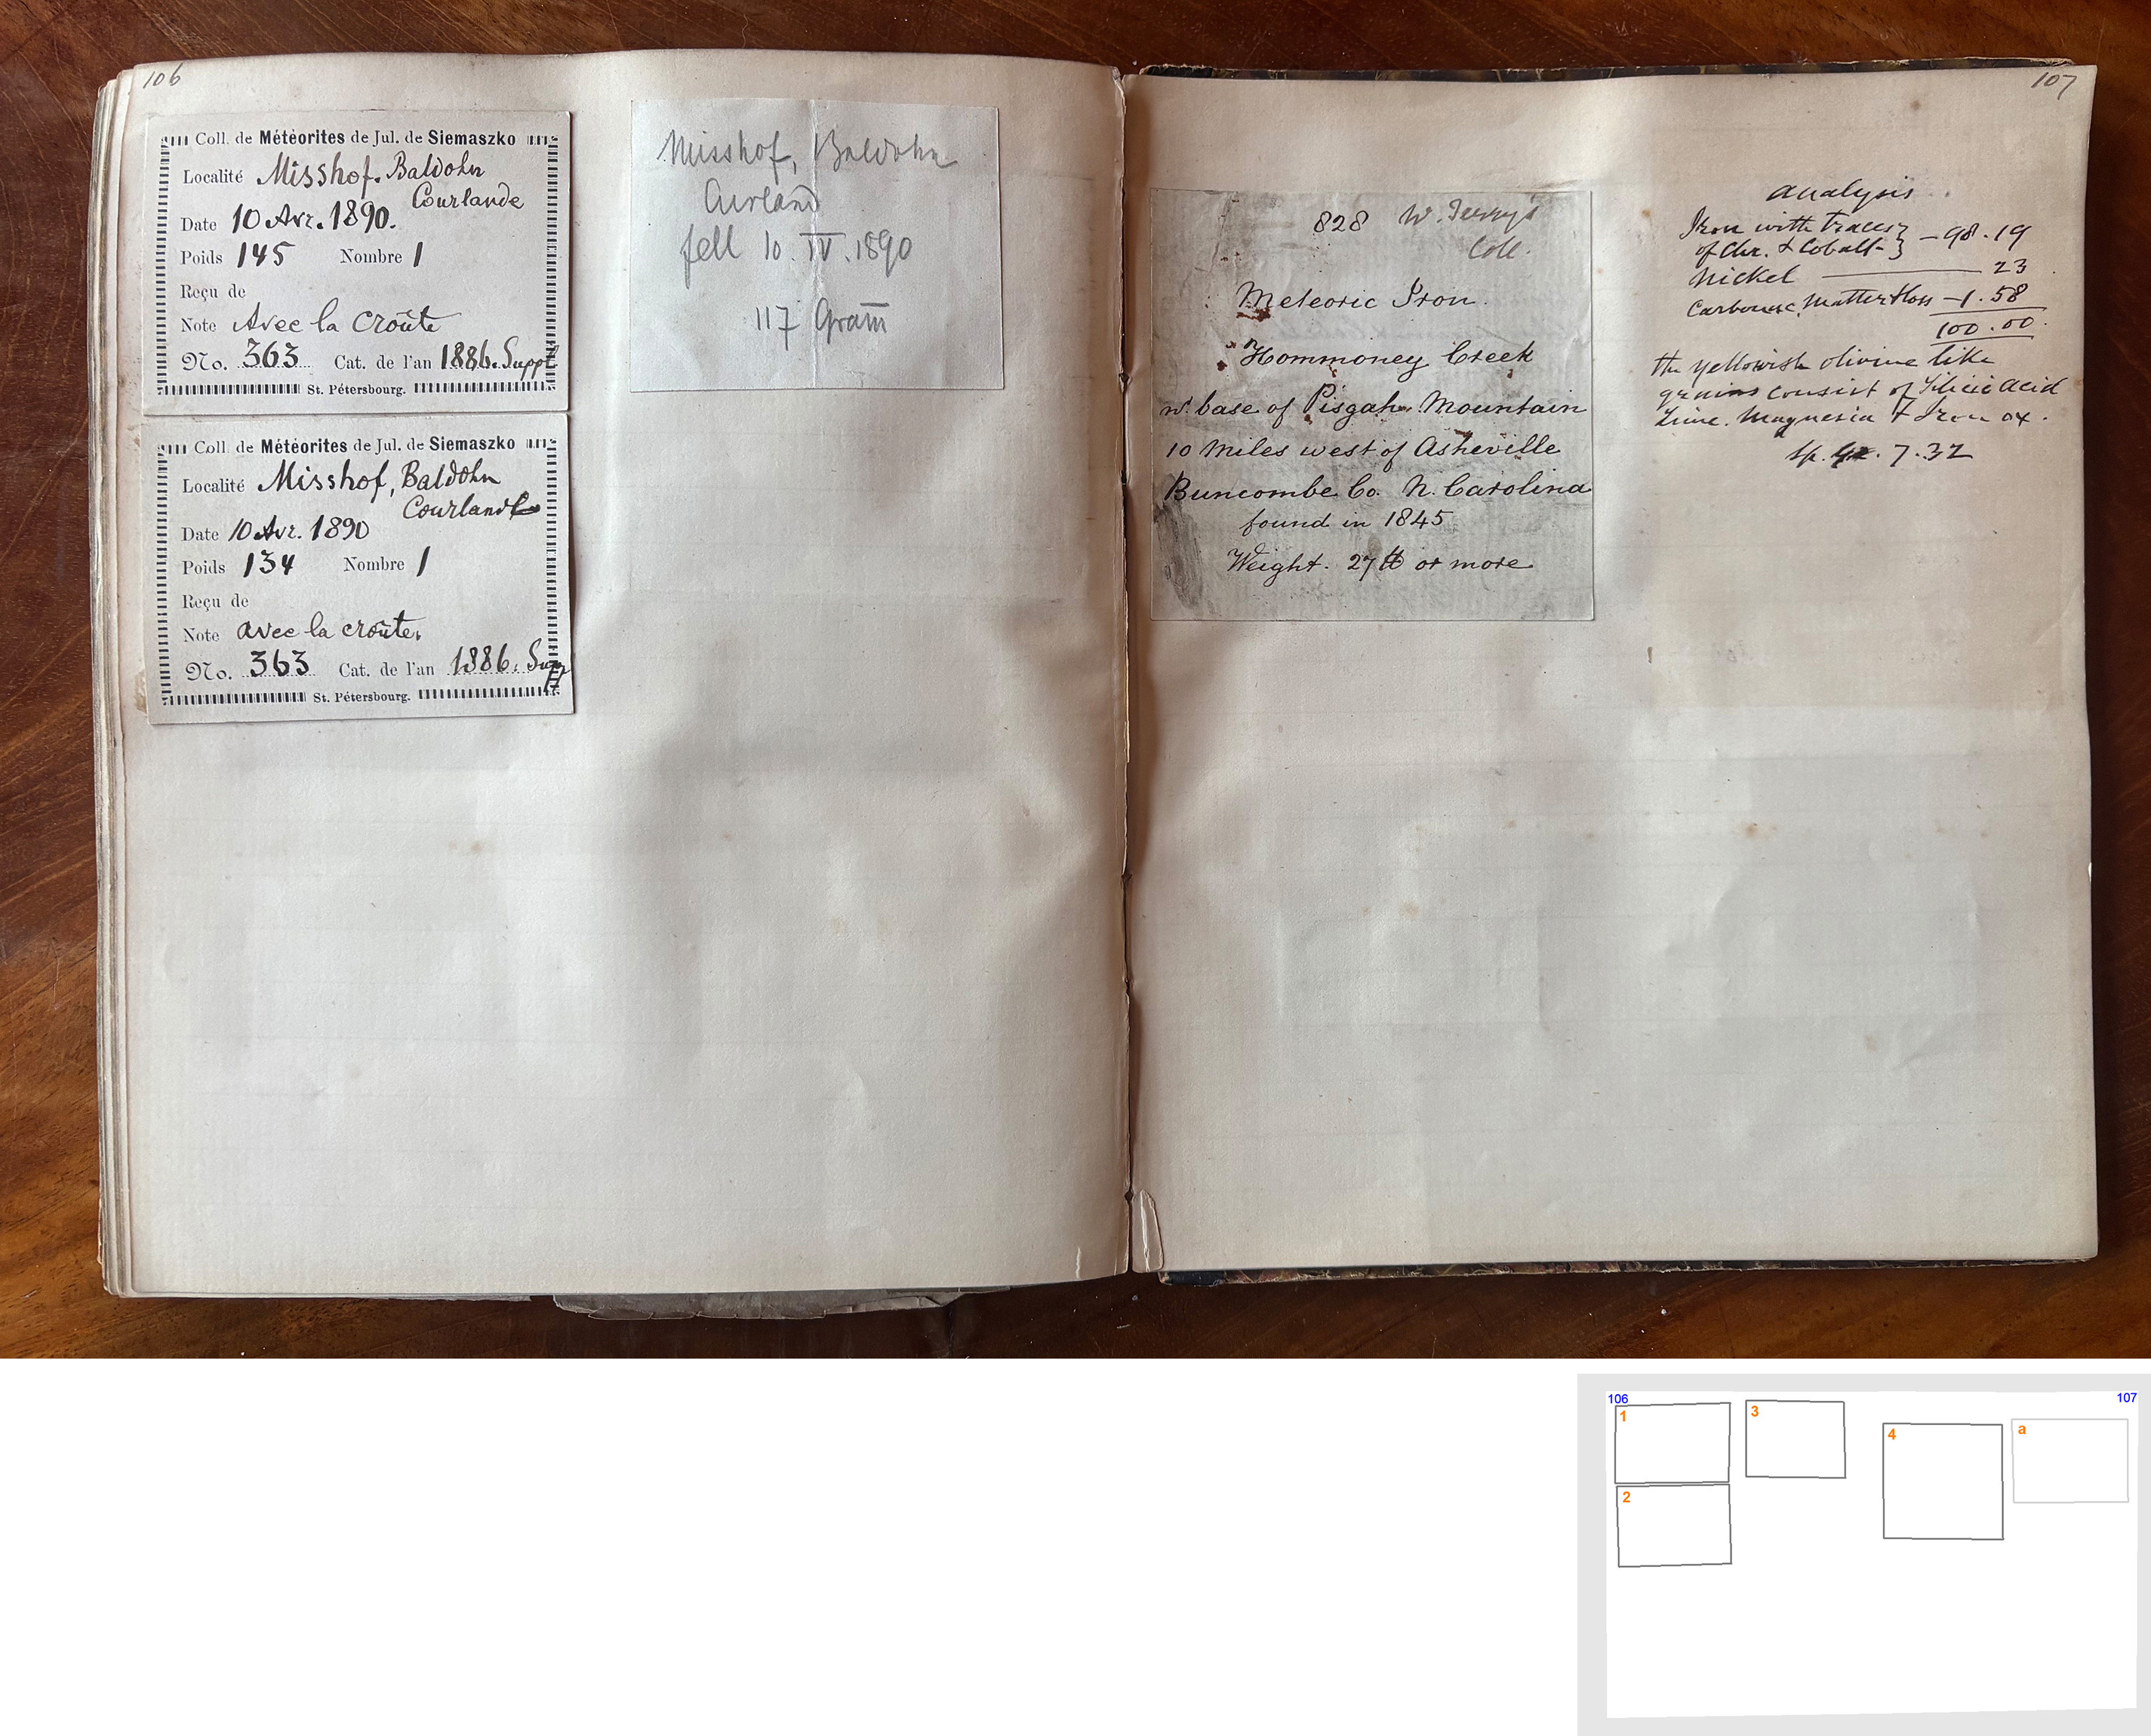 106
Coll. de Météorites de Jul. de Siemaszko
Localité Misshof. Baldohn
Courlande
Date 10 Avr. 1890.
Poids 145 Nombre 1
Reçu de
Note Avec la croûte
No. 363 Cat. de l'an 1886. Suppl
St. Pétersbourg.
Coll. de Météorites de Jul. de Siemaszko
Localité Misshof, Baldohn
Courlande
Date 10 Avr. 1890
Poids 134 Nombre 1
Reçu de
Note avec la croûte.
No. 363 Cat. de l'an 1886.
St. Pétersbourg.
Misshof, Baldohn
Curland
fell 10. IV. 1890
117 Gram
107
828 W.
Coll.
Meteoric Iron.
Hommoney Creek
base of Pisgah Mountain
10 Miles west of Asheville
Buncombe Co. N. Carolina
found in 1845
Weight. 27 ℔ or more
analysis
Iron with traces } — 98.19
of Chr. & Cobalt- }
Nickel — 23
Matter & loss — 1.58
100.00.
the yellowish olivine like
grains consist of Silicic acid
Lime. Magnesia & Iron ox.
Sp. Gr. 7.32
106
107
1
2
3
4
a